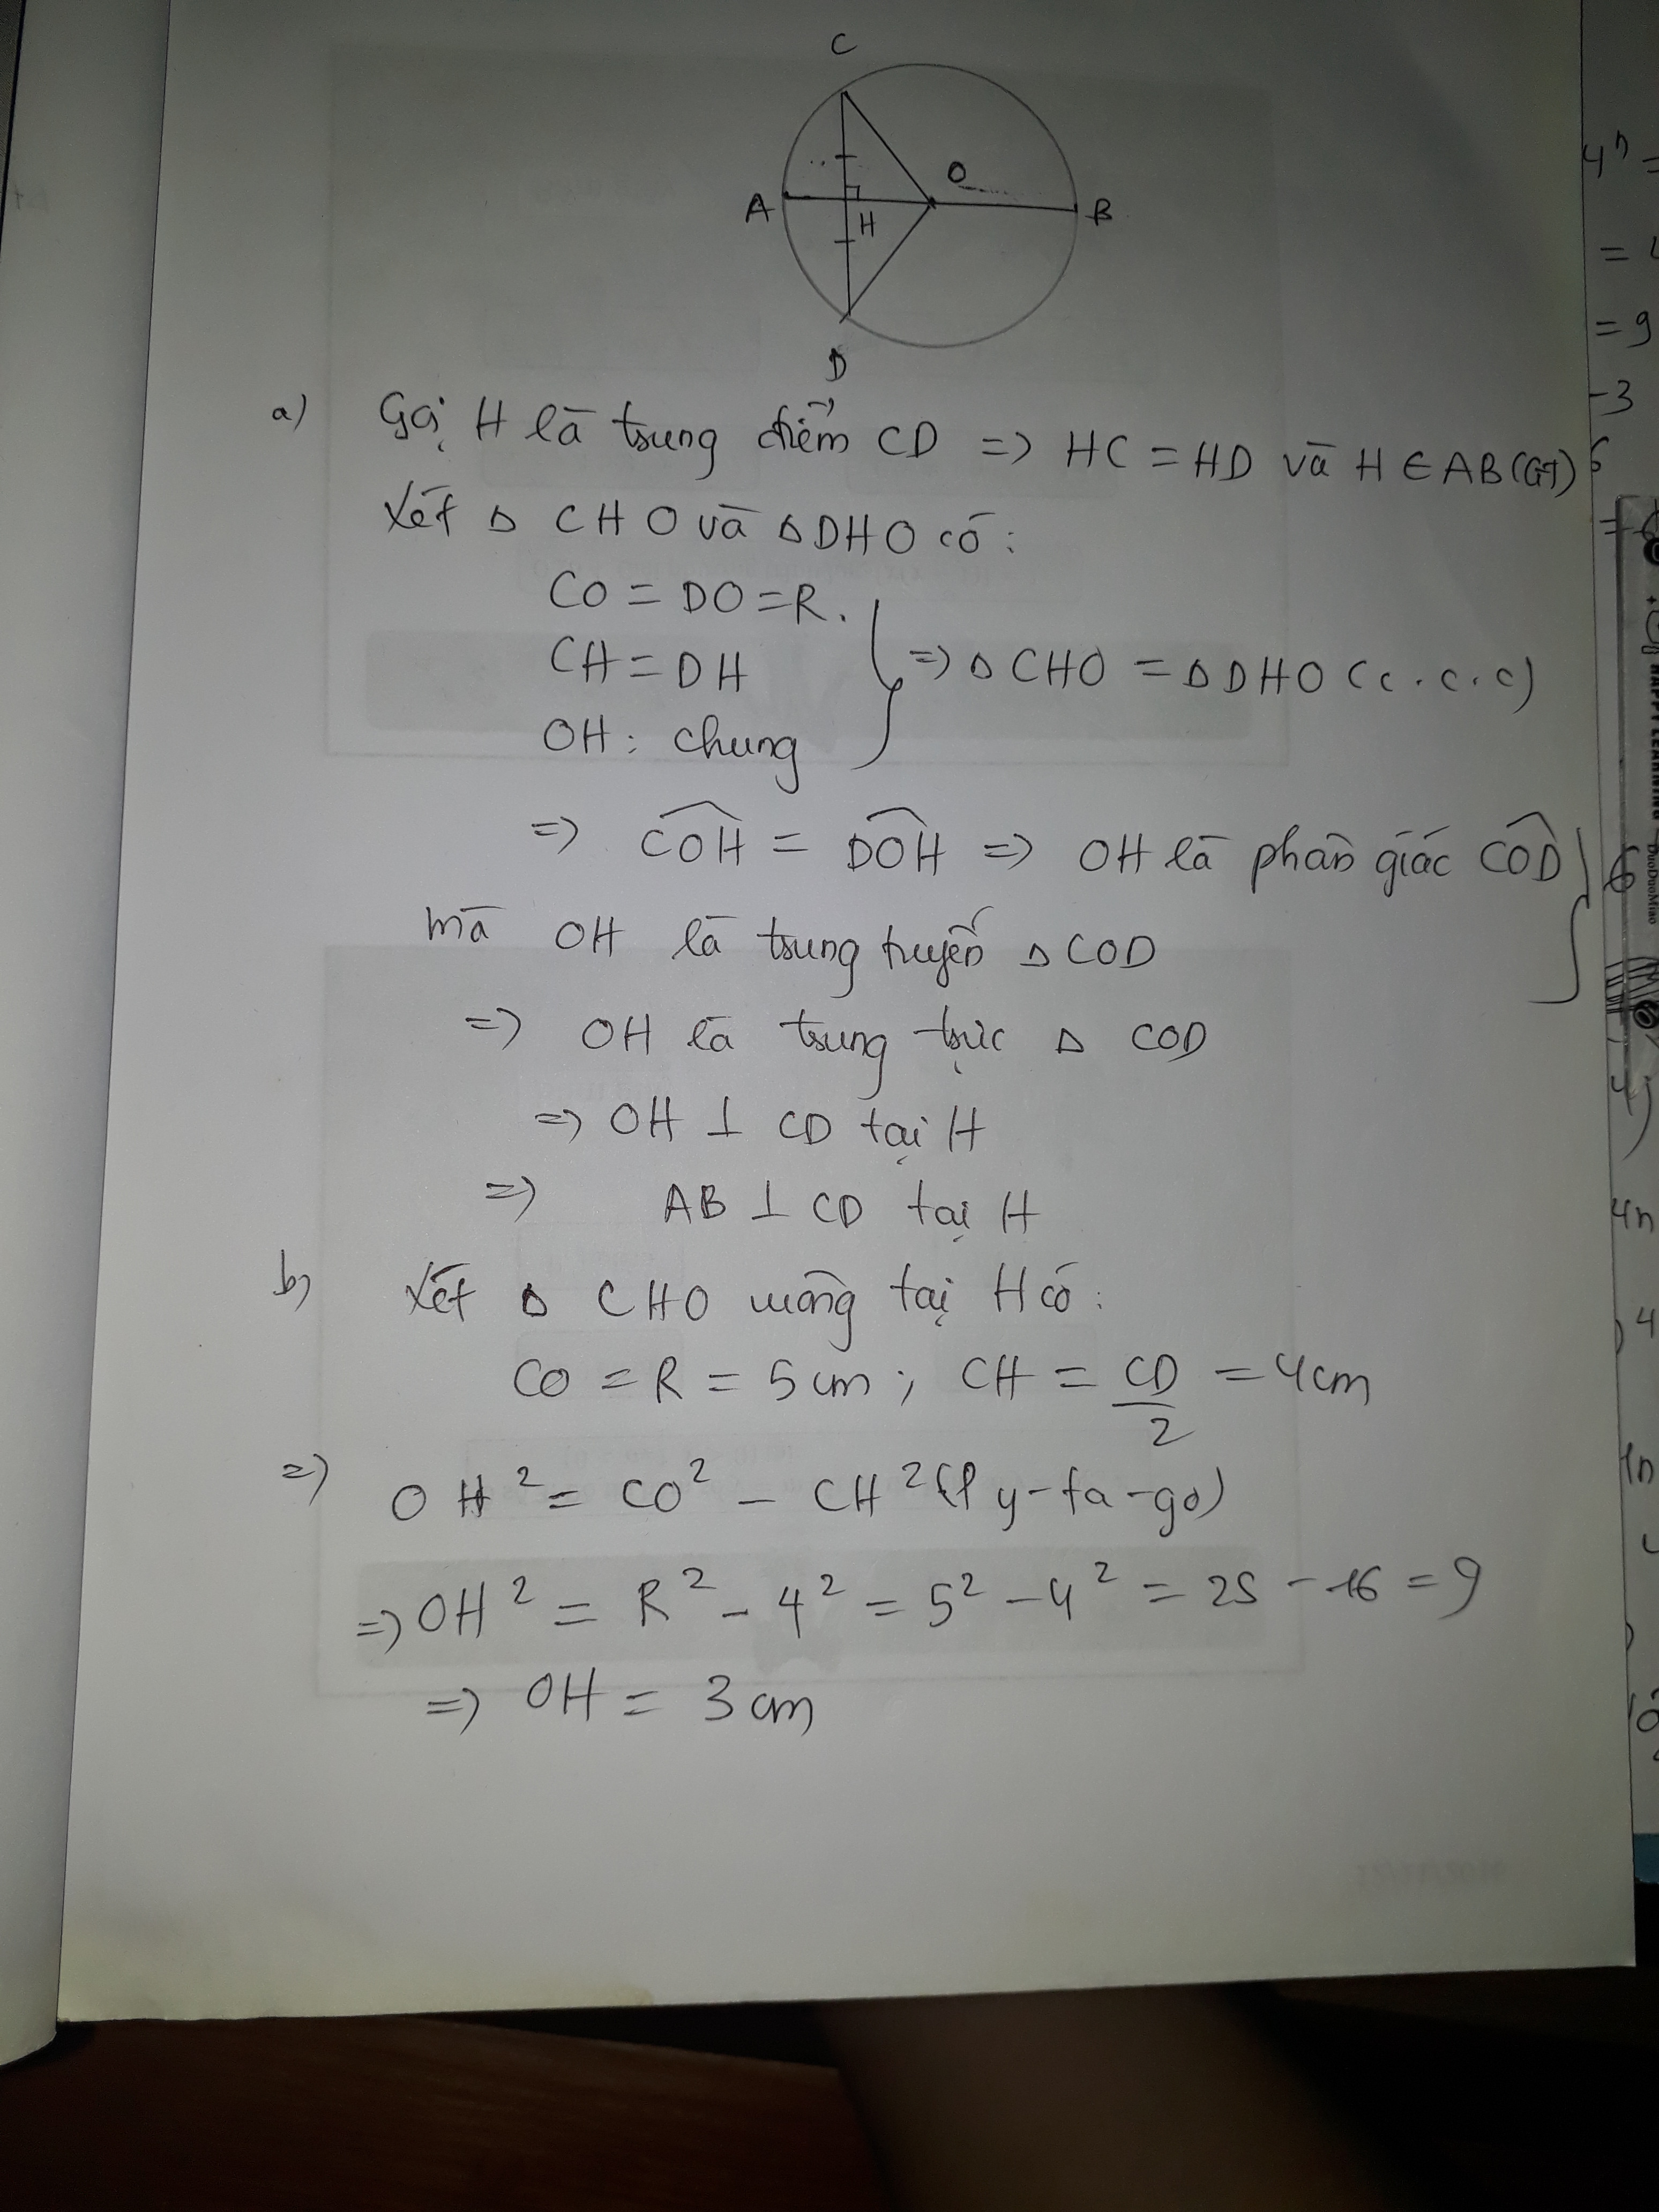 C
A
H
O
B
D
a) Gọi H là trung điểm CD => HC = HD và H ∈ AB (GT)
Xét Δ CHO và Δ DHO có:
CO = DO = R.
CH = DH
=> Δ CHO = Δ DHO (c.c.c)
OH: chung
=> \widehat{COH} = \widehat{DOH} => OH là phân giác \widehat{COD}
mà OH là trung tuyến Δ COD
=> OH là trung trực Δ COD
=> OH ⊥ CD tại H
=> AB ⊥ CD tại H
b) Xét Δ CHO vuông tại H có:
CO = R = 5cm; CH = CD/2 = 4cm
=> OH² = CO² - CH² (Py-ta-go)
=> OH² = R² - 4² = 5² - 4² = 25 - 16 = 9
=> OH = 3cm
4ⁿ =
=
= 9
-3
4n
4
DuoDuoMiao